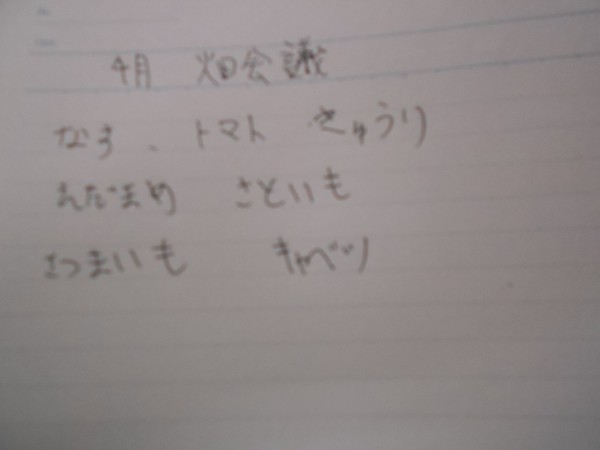 4月 畑会議
なす、トマト きゅうり
えだまめ さといも
さつまいも キャベツ